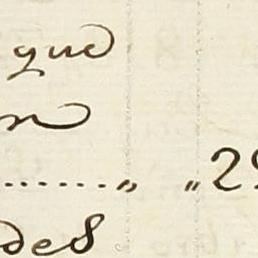 que
n
........ „ „ 2
des